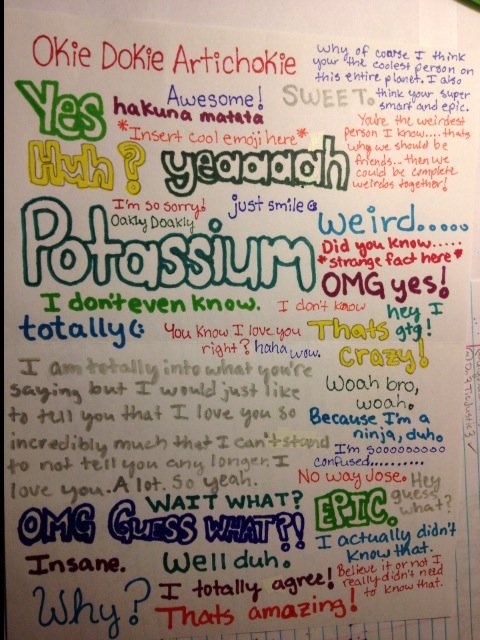 Okie Dokie Artichokie
Why of coarse I think
your the coolest person on
this entire planet. I also
think your super
smart and epic.
Yes
Awesome!
SWEET.
hakuna matata
*Insert cool emoji here*
You're the weirdest
person I know....thats
why we should be
friends...then we
could be complete
weirdos together!
Huh?
yeaaaah
I'm so sorry!
Oakly Doakly
just smile
weird.....
Potassium
Did you know.....
*strange fact here*
OMG yes!
I don't even know.
I don't know
hey I
gtg!
totally(:
You know I love you
right?
haha wow.
Thats
crazy!
I am totally into what you're
saying but I would just like
to tell you that I love you so
incredibly much that I can't stand
to not tell you any longer. I
love you. A lot. So yeah.
Woah bro,
woah.
Because I'm a
ninja, duh.
I'm soooooooooo
confused..........
No way Jose.
Hey
guess
what?
WAIT WHAT?
EPIC.
OMG GUESS WHAT?!
I actually didn't
know that.
Insane.
Well duh.
Believe it or not I
really didn't need
to know that.
Why?
I totally agree!
Thats amazing!